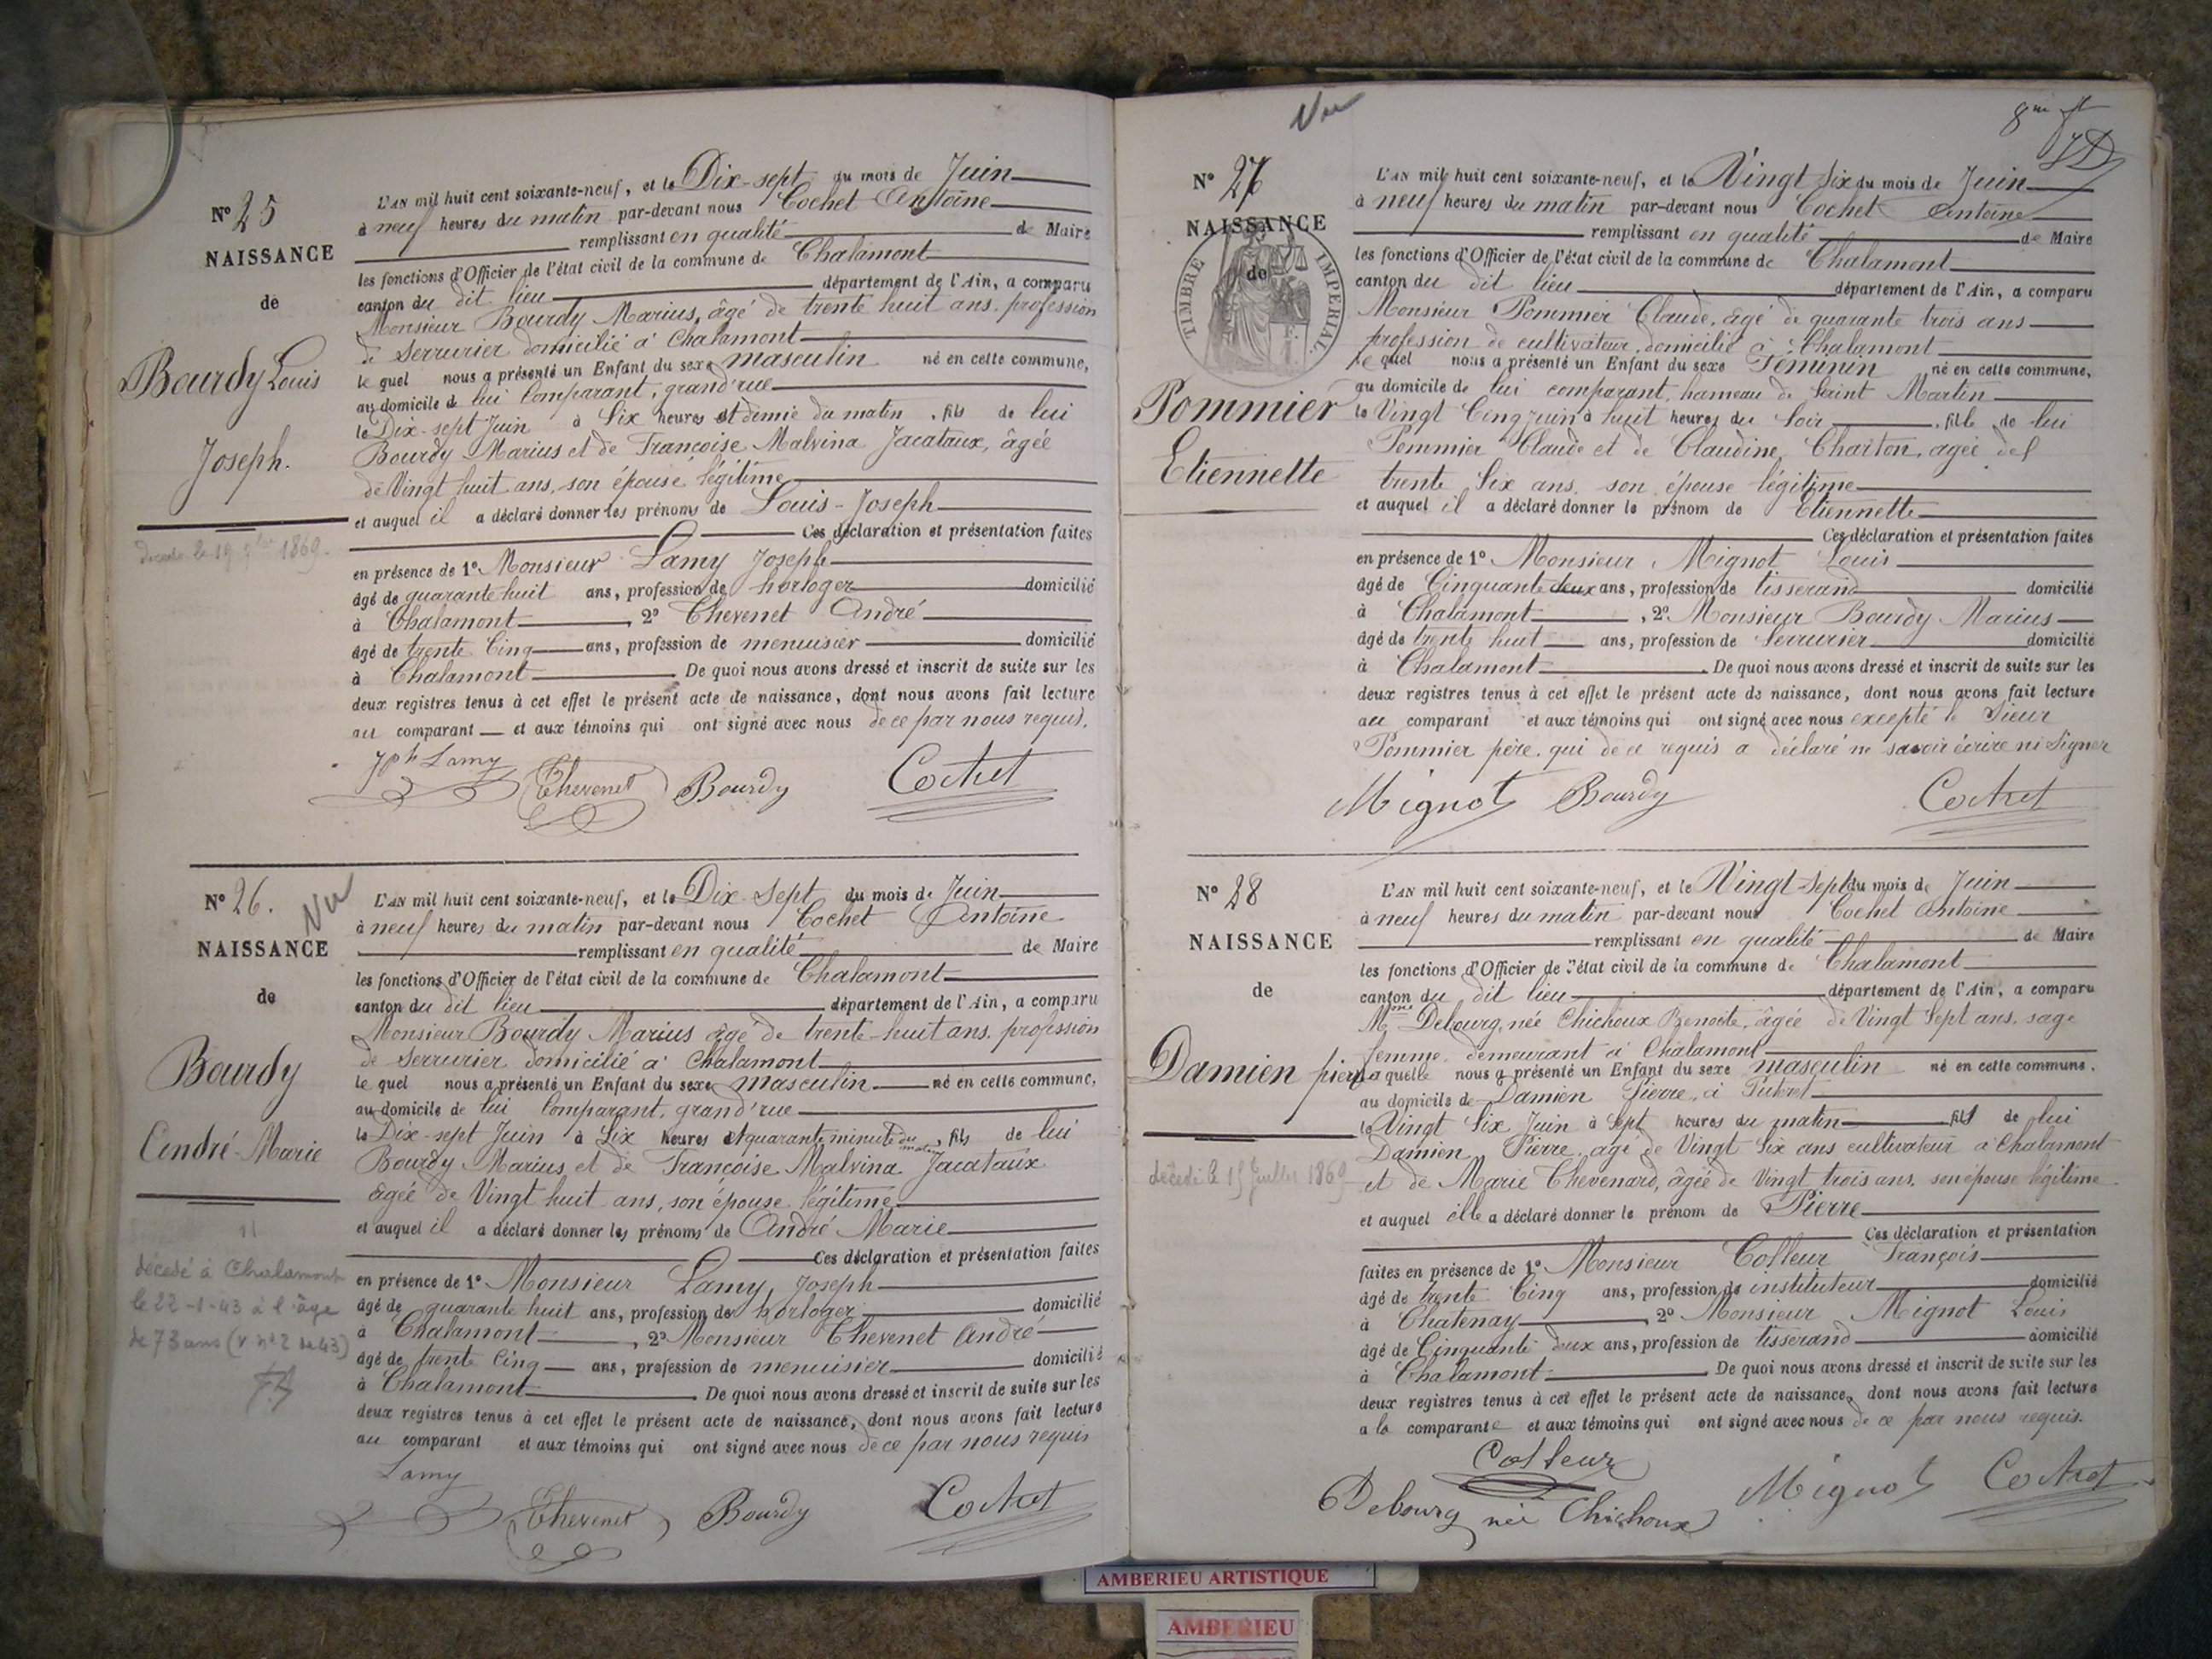 N° 25
NAISSANCE
de
Bourdy Louis
Joseph.
décédé le 19 1869
L'AN mil huit cent soixante-neuf, et le Dix-sept du mois de Juin
à neuf heures du matin par-devant nous Cochet Antoine
remplissant en qualité de Maire
les fonctions d'Officier de l'état civil de la commune de Chalamont
canton du dit lieu département de l'Ain, a comparu
Monsieur Bourdy Marius, âgé de trente huit ans, profession
de Serrurier domicilié à Chalamont
le quel nous a présenté un Enfant du sexe masculin né en cette commune,
au domicile de lui Comparant, grand'rue
le Dix-sept Juin à Six heures et demie du matin, fils de lui
Bourdy Marius et de Françoise Malvina Jacataux, âgée
de Vingt huit ans, son épouse légitime
et auquel il a déclaré donner les prénoms de Louis-Joseph
Ces déclaration et présentation faites
en présence de 1° Monsieur Lamy Joseph
âgé de quarante huit ans, profession de horloger domicilié
à Chalamont, 2° Thevenet André
âgé de trente Cinq ans, profession de menuisier domicilié
à Chalamont De quoi nous avons dressé et inscrit de suite sur les
deux registres tenus à cet effet le présent acte de naissance, dont nous avons fait lecture
au comparant et aux témoins qui ont signé avec nous de ce par nous requis.
Jph Lamy
Thevenet Bourdy Cochet
N° 26.
Vu
NAISSANCE
de
Bourdy
André-Marie
décédé à Chalamont
le 22-1-43 à l'âge
de 73 ans (v n° 2 de 43)
L'AN mil huit cent soixante-neuf, et le Dix-Sept du mois de Juin
à neuf heures du matin par-devant nous Cochet Antoine
remplissant en qualité de Maire
les fonctions d'Officier de l'état civil de la commune de Chalamont
canton du dit lieu département de l'Ain, a comparu
Monsieur Bourdy Marius âgé de trente-huit ans, profession
de Serrurier domicilié à Chalamont
le quel nous a présenté un Enfant du sexe masculin né en cette commune,
au domicile de lui Comparant, grand'rue
le Dix-sept Juin à Six heures et quarante minute du matin, fils de lui
Bourdy Marius et de Françoise Malvina Jacataux
âgée de Vingt huit ans, son épouse légitime
et auquel il a déclaré donner les prénoms de André Marie
Ces déclaration et présentation faites
en présence de 1° Monsieur Lamy Joseph
âgé de quarante huit ans, profession de horloger domicilié
à Chalamont, 2° Monsieur Thevenet André
âgé de trente Cinq ans, profession de menuisier domicilié
à Chalamont De quoi nous avons dressé et inscrit de suite sur les
deux registres tenus à cet effet le présent acte de naissance, dont nous avons fait lecture
au comparant et aux témoins qui ont signé avec nous de ce par nous requis
Lamy
Thevenet Bourdy Cochet
Vu
N° 27
NAISSANCE
de
TIMBRE IMPERIAL.
Pommier
Etiennette
L'AN mil huit cent soixante-neuf, et le Vingt Six du mois de Juin
à neuf heures du matin par-devant nous Cochet Antoine
remplissant en qualité de Maire
les fonctions d'Officier de l'état civil de la commune de Chalamont
canton du dit lieu département de l'Ain, a comparu
Monsieur Pommier Claude, âgé de quarante trois ans
profession de cultivateur, domicilié à Chalamont
le quel nous a présenté un Enfant du sexe Féminin né en cette commune,
au domicile de lui comparant, hameau de Saint Martin
le Vingt Cinq juin à huit heures du Soir, fille de lui
Pommier Claude et de Claudine Charton, agée de
trente Six ans, son épouse légitime
et auquel il a déclaré donner le prénom de Etiennette
Ces déclaration et présentation faites
en présence de 1° Monsieur Mignot Louis
âgé de Cinquante deux ans, profession de tisserand domicilié
à Chalamont, 2° Monsieur Bourdy Marius
âgé de trente huit ans, profession de Serrurier domicilié
à Chalamont. De quoi nous avons dressé et inscrit de suite sur les
deux registres tenus à cet effet le présent acte de naissance, dont nous avons fait lecture
au comparant et aux témoins qui ont signé avec nous excepté le Sieur
Pommier père, qui de ce requis a déclaré ne savoir écrire ni Signer
Mignot Bourdy Cochet
N° 28
NAISSANCE
de
Damien pierre
décédé le 15 Juillet 1869
L'AN mil huit cent soixante-neuf, et le Vingt-Sept du mois de Juin
à neuf heures du matin par-devant nous Cochet Antoine
remplissant en qualité de Maire
les fonctions d'Officier de l'état civil de la commune de Chalamont
canton du dit lieu département de l'Ain, a comparu
Mme Debourg, née Chichoux Benoite, âgée de Vingt Sept ans, sage
femme, demeurant à Chalamont
laquelle nous a présenté un Enfant du sexe masculin né en cette commune.
au domicile de Damien Pierre, à
le Vingt Six Juin à Sept heures du matin fils de lui
Damien Pierre, âgé de Vingt Six ans cultivateur à Chalamont
et de Marie Thevenard, âgée de Vingt trois ans, son épouse légitime
et auquel elle a déclaré donner le prénom de Pierre
Ces déclaration et présentation
faites en présence de 1° Monsieur Colleur François
âgé de trente Cinq ans, profession de instituteur domicilié
à Chatenay, 2° Monsieur Mignot Louis
âgé de Cinquante deux ans, profession de tisserand domicilié
à Chalamont. De quoi nous avons dressé et inscrit de suite sur les
deux registres tenus à cet effet le présent acte de naissance, dont nous avons fait lecture
a la comparante et aux témoins qui ont signé avec nous de ce par nous requis.
Colleur
Debourg née Chichoux Mignot Cochet
AMBERIEU ARTISTIQUE
AMBERIEU